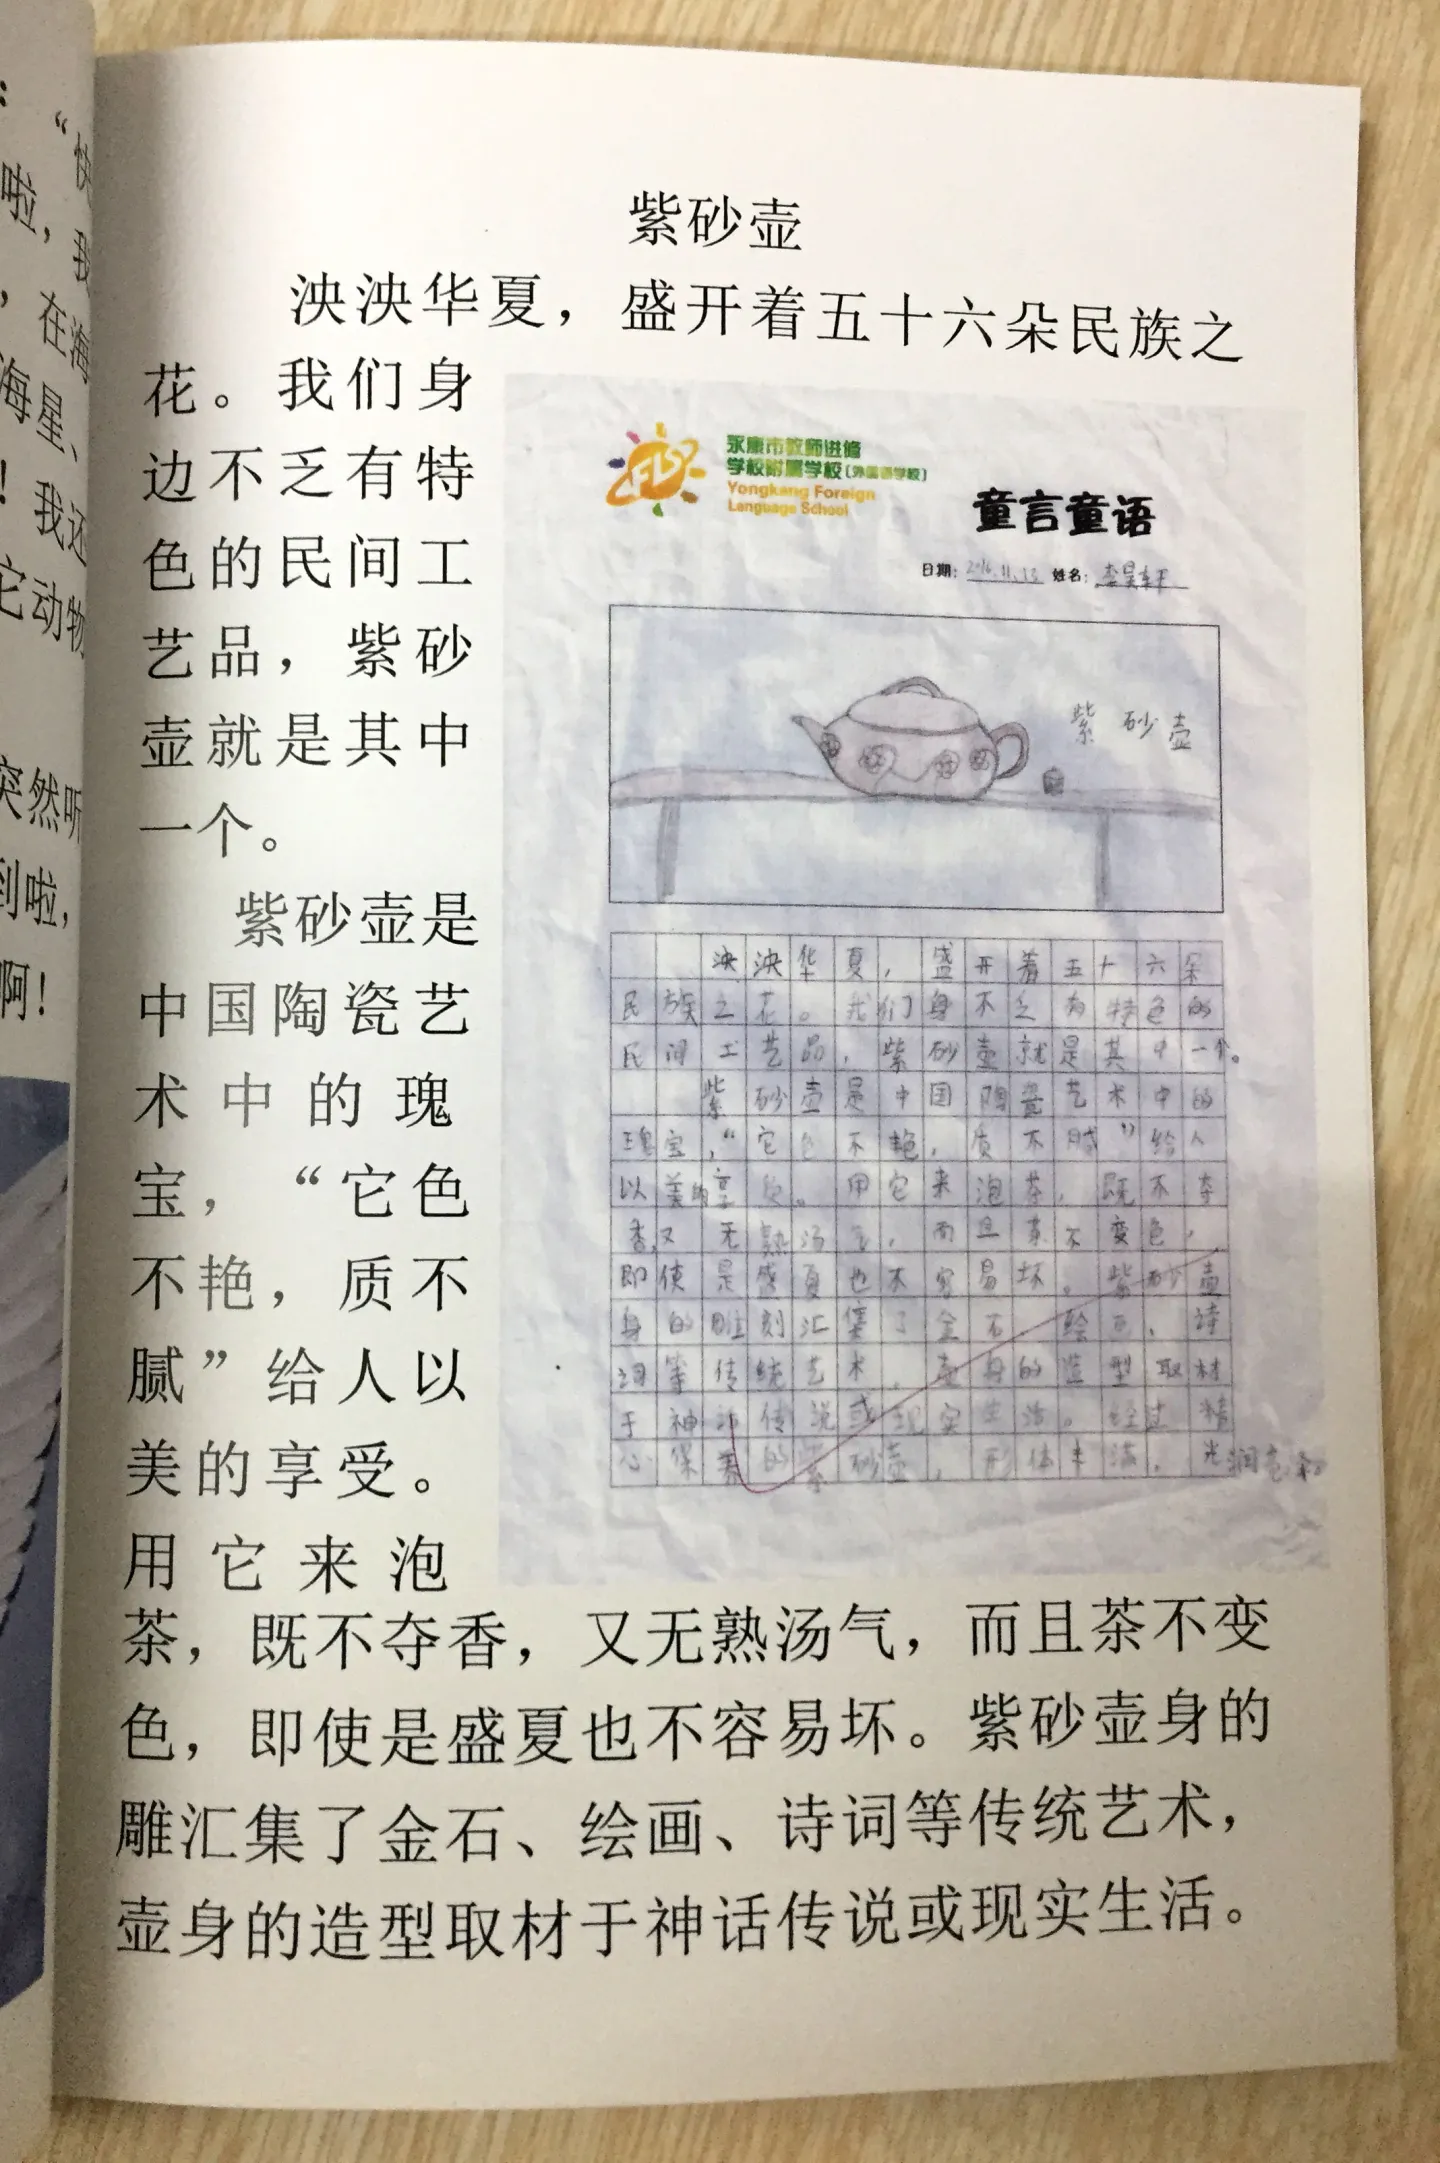 紫砂壶
泱泱华夏，盛开着五十六朵民族之
花。我们身
边不乏有特
色的民间工
艺品，紫砂
壶就是其中
一个。
紫砂壶是
中国陶瓷艺
术中的瑰
宝，“它色
不艳，质不
腻”给人以
美的享受。
用它来泡
茶，既不夺香，又无熟汤气，而且茶不变
色，即使是盛夏也不容易坏。紫砂壶身的
雕汇集了金石、绘画、诗词等传统艺术，
壶身的造型取材于神话传说或现实生活。
永康市教师进修
学校附属学校(外国语学校)
Yongkang Foreign
Language School
童言童语
日期: 2016.11.12 姓名:
紫砂壶
泱泱华夏，盛开着五十六朵
民族之花。我们身不乏有特色的
民间工艺品，紫砂壶就是其中一个。
紫砂壶是中国陶瓷艺术中的
瑰宝，“它色不艳，质不腻”给人
以美的享受。用它来泡茶，既不夺
香，又无熟汤气，而且茶不变色，
即使是盛夏也不容易坏。紫砂壶
身的雕刻汇集了金石、绘画、诗
词等传统艺术，壶身的造型取材
于神话传说或现实生活。经过精
心保养的紫砂壶，形体丰满，光润亮
“快
啦，我
，在海
海星、
！我还
它动物
突然听
到啦，
啊！